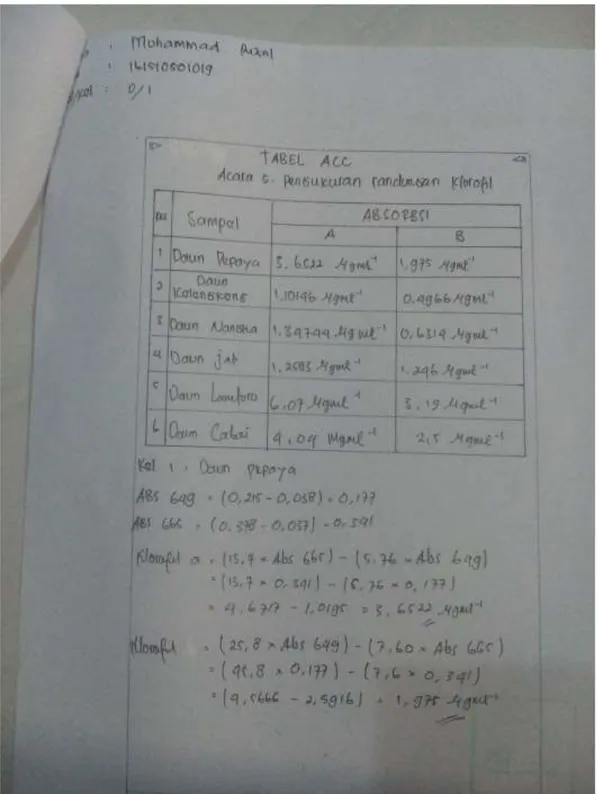 : Muhammad Rizal
: 161510501019
: D/1
TABEL ACC
Acara 5. Pengukuran Kandungan Klorofil
No Sampel ABSORBSI
A B
1 Daun Pepaya 3,6522 µgml⁻¹ 1,975 µgml⁻¹
2 Daun 1,10146 µgml⁻¹ 0,4966 µgml⁻¹
3 Daun Nangka 1,34744 µgml⁻¹ 0,6314 µgml⁻¹
4 Daun jati 1,2593 µgml⁻¹ 1,246 µgml⁻¹
5 Daun Lamtoro 6,07 µgml⁻¹ 3,19 µgml⁻¹
6 Daun Cabai 4,04 µgml⁻¹ 2,5 µgml⁻¹
Kel 1. Daun pepaya
ABS 649 = (0,215 - 0,038) = 0,177
ABS 665 = (0,378 - 0,037) = 0,341
Klorofil a = (13,7 × Abs 665) - (5,76 × Abs 649)
= (13,7 × 0,341) - (5,76 × 0,177)
= 4,6717 - 1,0195 = 3,6522 µgml⁻¹
Klorofil = (25,8 × Abs 649) - (7,60 × Abs 665)
= (25,8 × 0,177) - (7,6 × 0,341)
= (4,5666 - 2,5916) = 1,975 µgml⁻¹